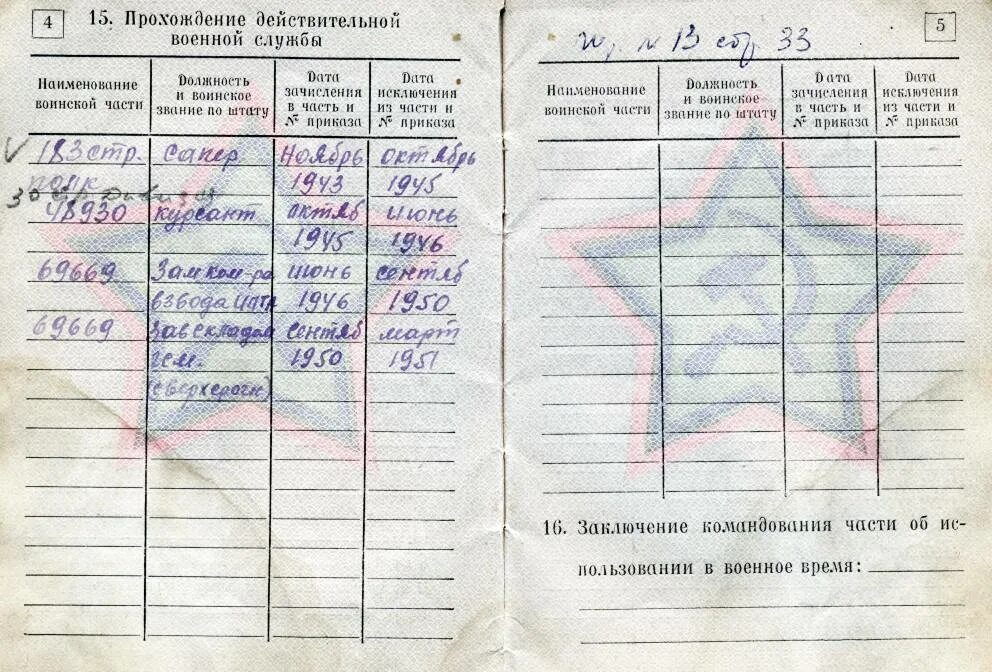 4
15. Прохождение действительной
военной службы
Наименование
воинской части
Должность
и воинское
звание по штату
Дата
зачисления
в часть и
№ приказа
Дата
исключения
из части и
№ приказа
183 стр. сапер ноябрь октябрь
полк 1943 1945
30 стр. дивизия
48930 курсант октяб июнь
1945 1946
69669 Замком-ра июнь сентяб
взвода 1946 1950
69669 Зав складом сентяб март
1950 1951
(сверхсрочн)
5
№ 13 стр 33
Наименование
воинской части
Должность
и воинское
звание по штату
Дата
зачисления
в часть и
№ приказа
Дата
исключения
из части и
№ приказа
16. Заключение командования части об ис-
пользовании в военное время: